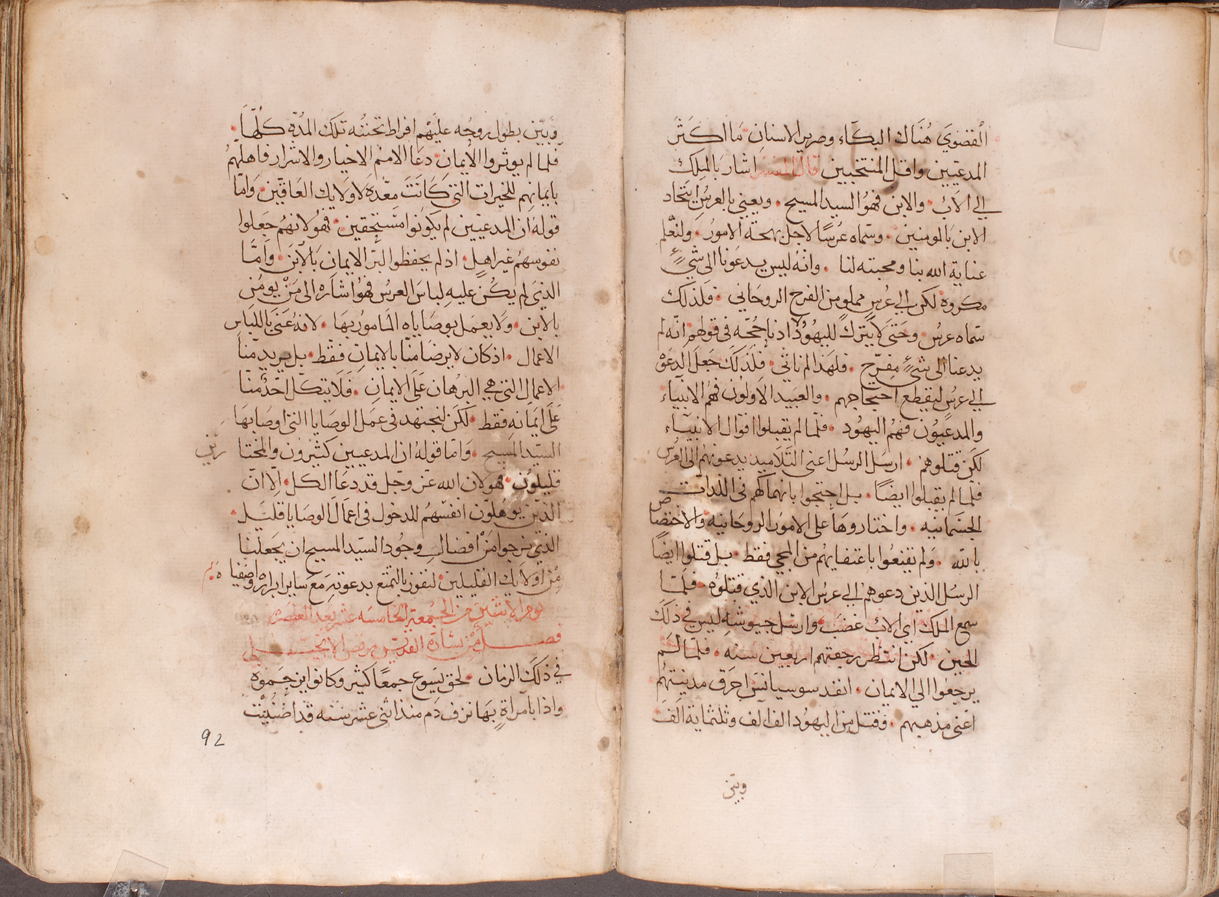 القصوي هناك البكاء وصرير الاسنان ما اكثر
المدعيين واقل المنتخبين قال المفسر اشار بالملك
الي الاب والابن فهو السيد المسيح ويعني بالعرس اتحاد
الابن بالمومنين وسماه عرسًا لاجل بهجة الامور ولنعلم
عناية الله بنا ومحبته لنا وانه ليس يدعونا الى شيٍ
مكروه لكن الي عرس مملو من الفرح الروحاني فلذلك
سماه عرس وحتى لا يترك لليهود اذنا حجه في قولهم انه لم
يدعنا الى شيٍ مفرح فلهذا لم ناتي فلذلك جعل الدعوه
الي عرس ليقطع احتجاجهم والعبيد الاولون فهم الانبياء
والمدعيون فهم اليهود فلما لم يقبلوا اقوال الانبياء
لكن قتلوهم ارسل الرسل اعني التلاميذ يدعونهم الى العرس
فلما لم يقبلوا ايضًا بل احتجوا بانهماكهم في اللذات
الجسمانيه واختاروها على الامور الروحانيه والاختصاص
بالله ولم يقنعوا باعتفايهم من المجي فقط بل قتلوا ايضًا
الرسل الذين دعوهم الي عرس الابن الذي قتلوه فلما
سمع الملك اي الاب غضب وارسل جيوشه ليس في ذلك
الحين لكن انتظر رجعتهم اربعين سنه فلما لم
يرجعوا الي الايمان انفد سوسيانس احرق مدينتهم
اعني مذهبهم وقتل من اليهود الف الف وثلثماية الف
وبين
وبين بطول روحه عليهم افراط تحننه تلك المده كلها
فلما لم يوثروا الايمان دعا الامم الاخيار والاشرار فاهلهم
بايمانهم للخيرات التي كانت معده لاولايك العاقين واما
قوله ان المدعيين لم يكونوا مستحقين فهولا نهم جعلوا
نفوسهم غير اهل اذ لم يحفظوا البر الايمان بالابن وامّا
الذي لم يكن عليه لباس العرس فهو اشاره الى من يومن
بالابن ولا يعمل بوصاياه المامور بها لانه عنى باللباس
الاعمال اذ كان لا يرضا منا بالايمان فقط بل يريد منا
الاعمال التي هي البرهان على الايمان فلا يتكل احد منا
على ايمانه فقط لكن لنجتهد في عمل الوصايا التي وصانا بها
السيد المسيح واما قوله ان المدعيين كثيرون والمختارين
قليلون فهو لان الله عز وجل قد دعا الكل الا ان
الذين يوهلون انفسهم للدخول في اعمال الوصايا قليل
الذي نرجوا من افضال وجود السيد المسيح ان يجعلنا
من اولايك القليلين لنفوز بالتمتع بدعوته مع ساير ابراره واصفيا ه
يوم الاثنين من الجمعة الخامسه عشر بعد العنصره
فصل من بشارة القديس مرقس الانجيلي
في ذلك الزمان لحق يسوع جمعًا كثير وكانوا يزحموه
واذا بامراةٍ بها نزف دم منذ اثنى عشر سنه قد اضنيت
92